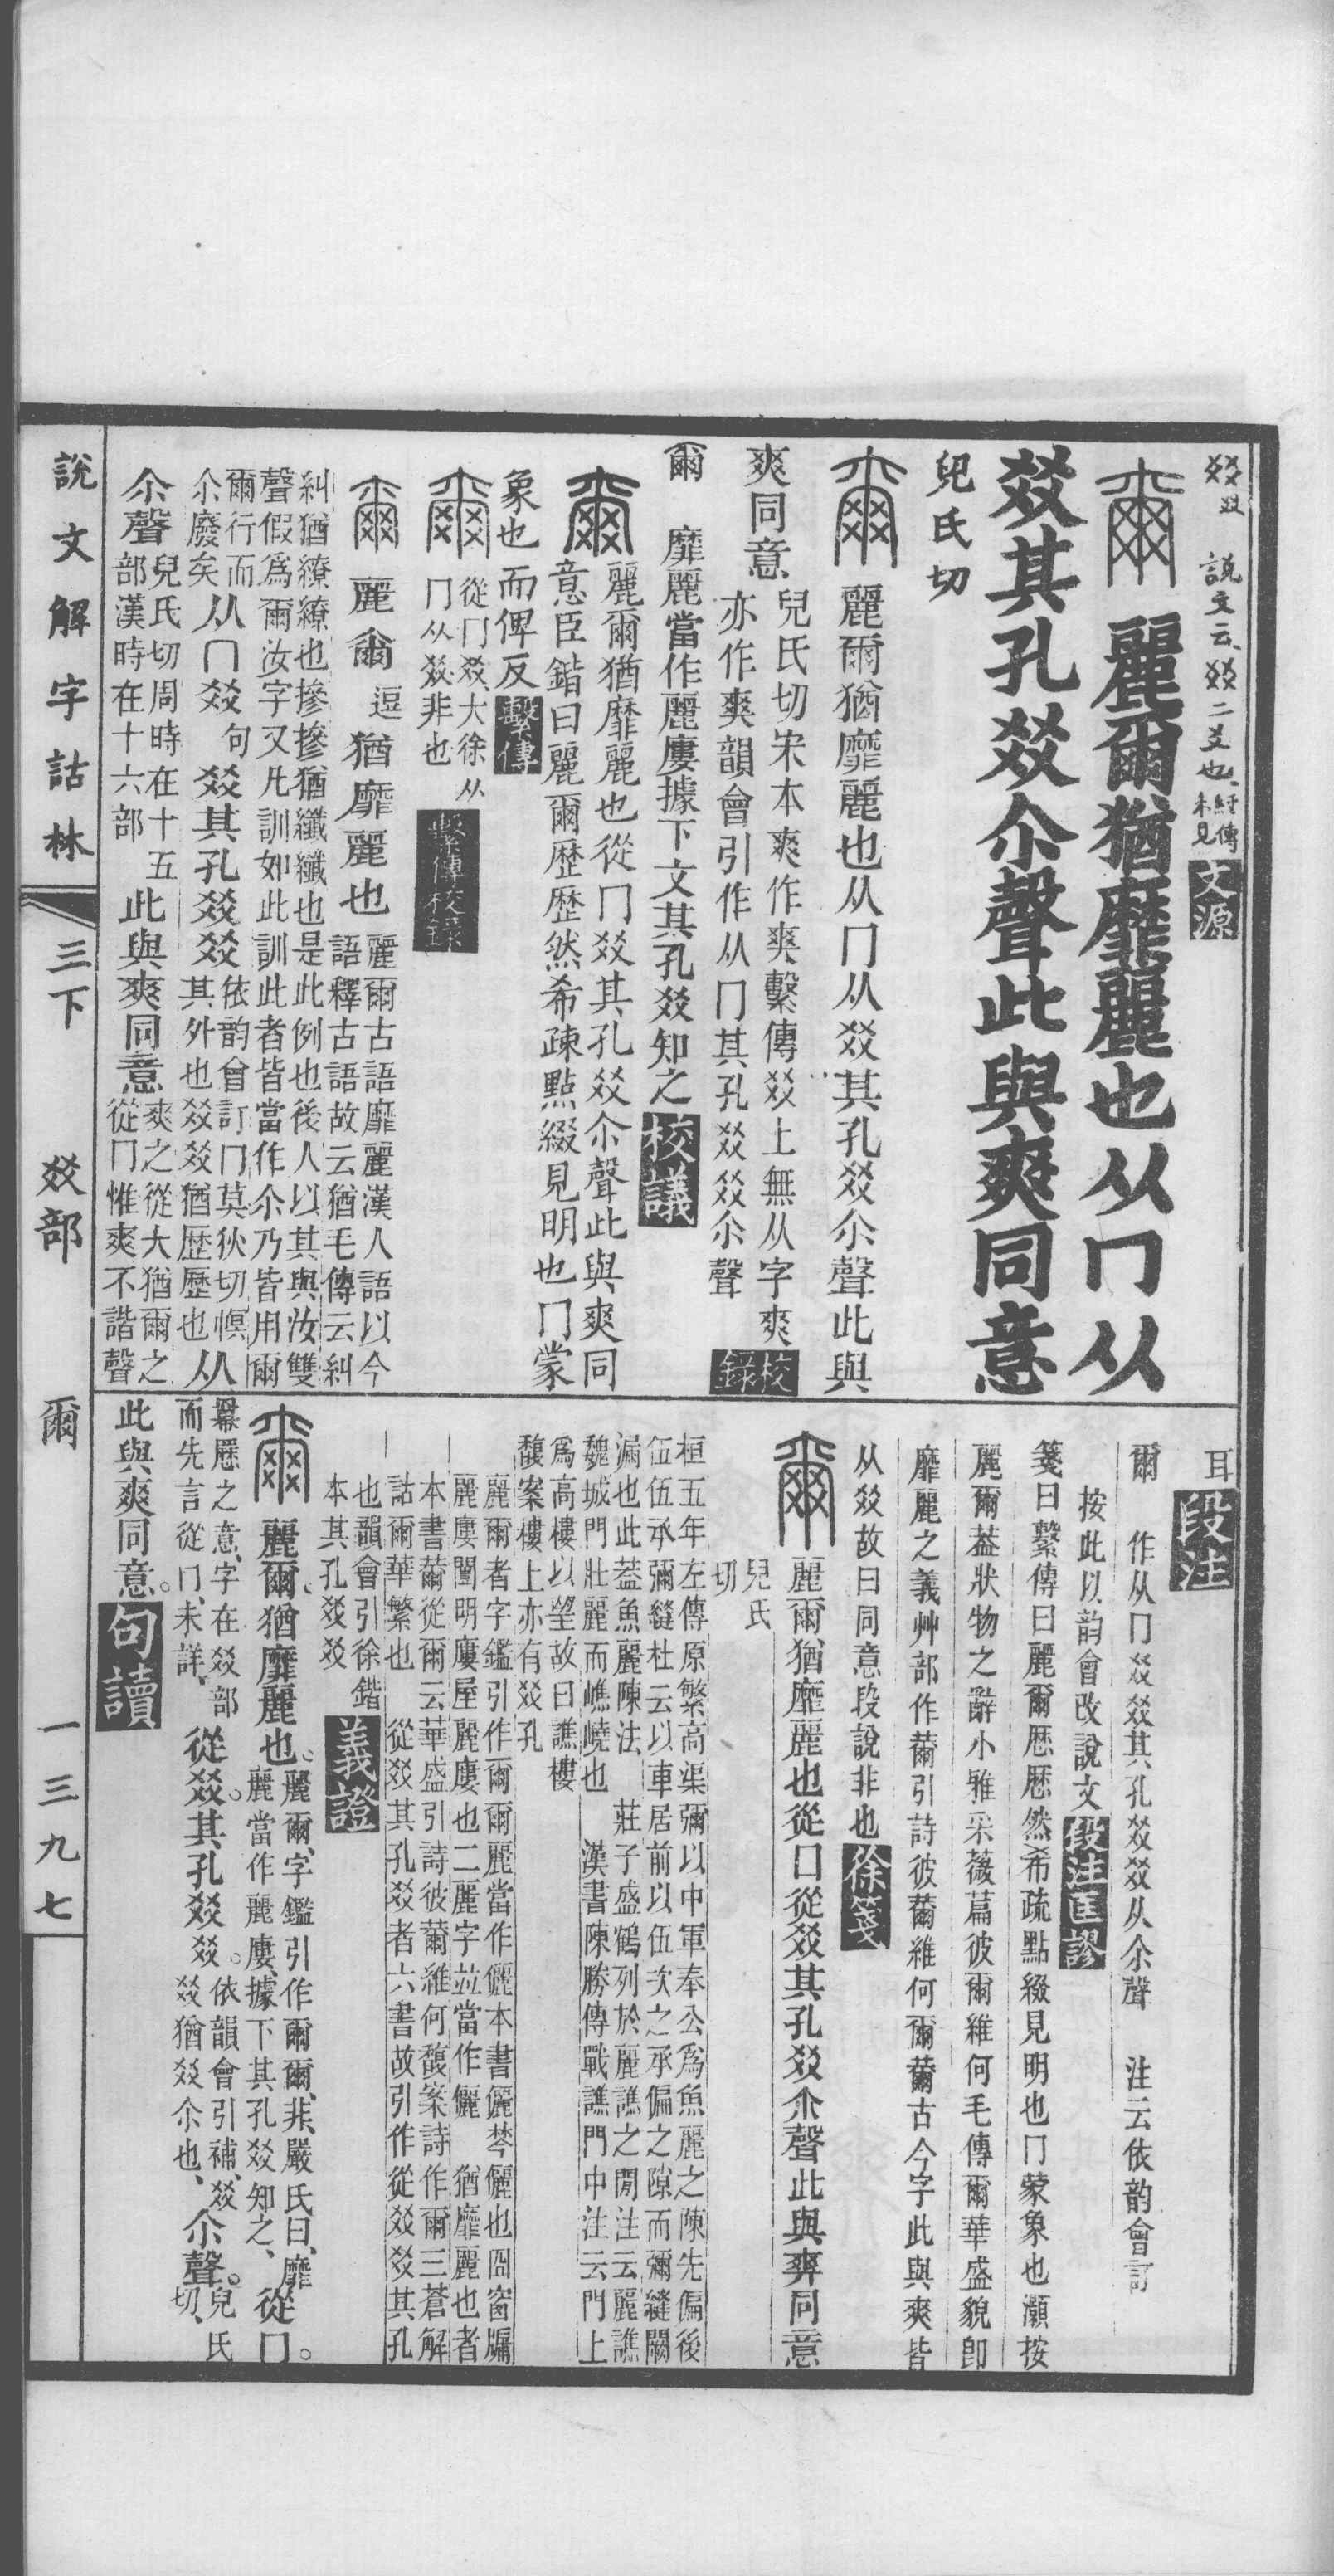 㸚㸚 說文云、㸚二爻也、經傳未見 文源
爾 麗爾猶靡麗也从冂从
㸚其孔㸚尒聲此與爽同意
兒氏切
爾 麗爾猶靡麗也从冂从㸚其孔㸚尒聲此與
爽同意 兒氏切宋本爽作爽繫傳㸚上無从字爽
亦作爽韻會引作从冂其孔㸚㸚尒聲 校錄
爾 靡麗當作麗廔據下文其孔㸚知之 校議
爾 麗爾猶靡麗也從冂㸚其孔㸚尒聲此與爽同
意臣鍇曰麗爾歷歷然希疎點綴見明也冂蒙
象也而俾反 繫傳
爾 從冂㸚、大徐从
冂从㸚、非也 繫傳校錄
爾 麗爾 逗 猶靡麗也 麗爾古語靡麗漢人語以今
語釋古語故云猶毛傳云糾
糾猶繚繚也摻摻猶纖纖也是此例也後人以其與汝雙
聲假爲爾汝字又凡訓如此訓此者皆當作尒乃皆用爾
爾行而
尒廢矣 从冂㸚 句 㸚其孔㸚㸚 依韵會訂冂莫狄切幎
其外也㸚㸚猶歷歷也 从
尒聲 兒氏切周時在十五
部漢時在十六部 此與爽同意 爽之從大猶爾之
從冂惟爽不諧聲
耳 段注
爾 作从冂㸚㸚其孔㸚㸚从尒聲 注云依韵會訂
按此以韵會改說文 段注匡謬
箋曰繫傳曰麗爾歷歷然希疏點綴見明也冂蒙象也灝按
麗爾葢狀物之辭小雅采薇篇彼爾維何毛傳爾華盛貌卽
靡麗之義艸部作薾引詩彼薾維何爾薾古今字此與爽皆
从㸚故曰同意段說非也 徐箋
爾 麗爾猶靡麗也從冂從㸚其孔㸚尒聲此與爽同意
兒氏
切
桓五年左傳原繁高渠彌以中軍奉公爲魚麗之陳先偏後
伍伍承彌縫杜云以車居前以伍次之承偏之隙而彌縫闕
漏也此葢魚麗陳法 莊子盛鶴列於麗譙之閒注云麗譙
魏城門壯麗而嶕嶢也 漢書陳勝傳戰譙門中注云門上
爲高樓以望故曰譙樓
馥案樓上亦有㸚孔
麗爾者字鑑引作爾爾麗當作儷本書儷棽儷也囧窗牖
麗廔闓明廔屋麗廔也二麗字竝當作儷 猶靡麗也者
本書薾從爾云華盛引詩彼薾維何馥案詩作爾三蒼解
詁爾華繁也 從㸚其孔㸚者六書故引作從㸚㸚其孔
也韻會引徐鍇
本其孔㸚㸚 義證
爾 麗爾、猶靡麗也。麗爾、字鑑引作爾爾、非、嚴氏曰、靡
麗當作麗廔、據下其孔㸚知之、 從冂。
冪歷之意、字在㸚部
而先言從冂、未詳、 從㸚。其孔㸚㸚。 依韻會引補、㸚
㸚猶㸚尒也、 尒聲。 兒氏
切、
此與爽同意。 句讀
說文解字詁林 三下 㸚部 爾 一三九七